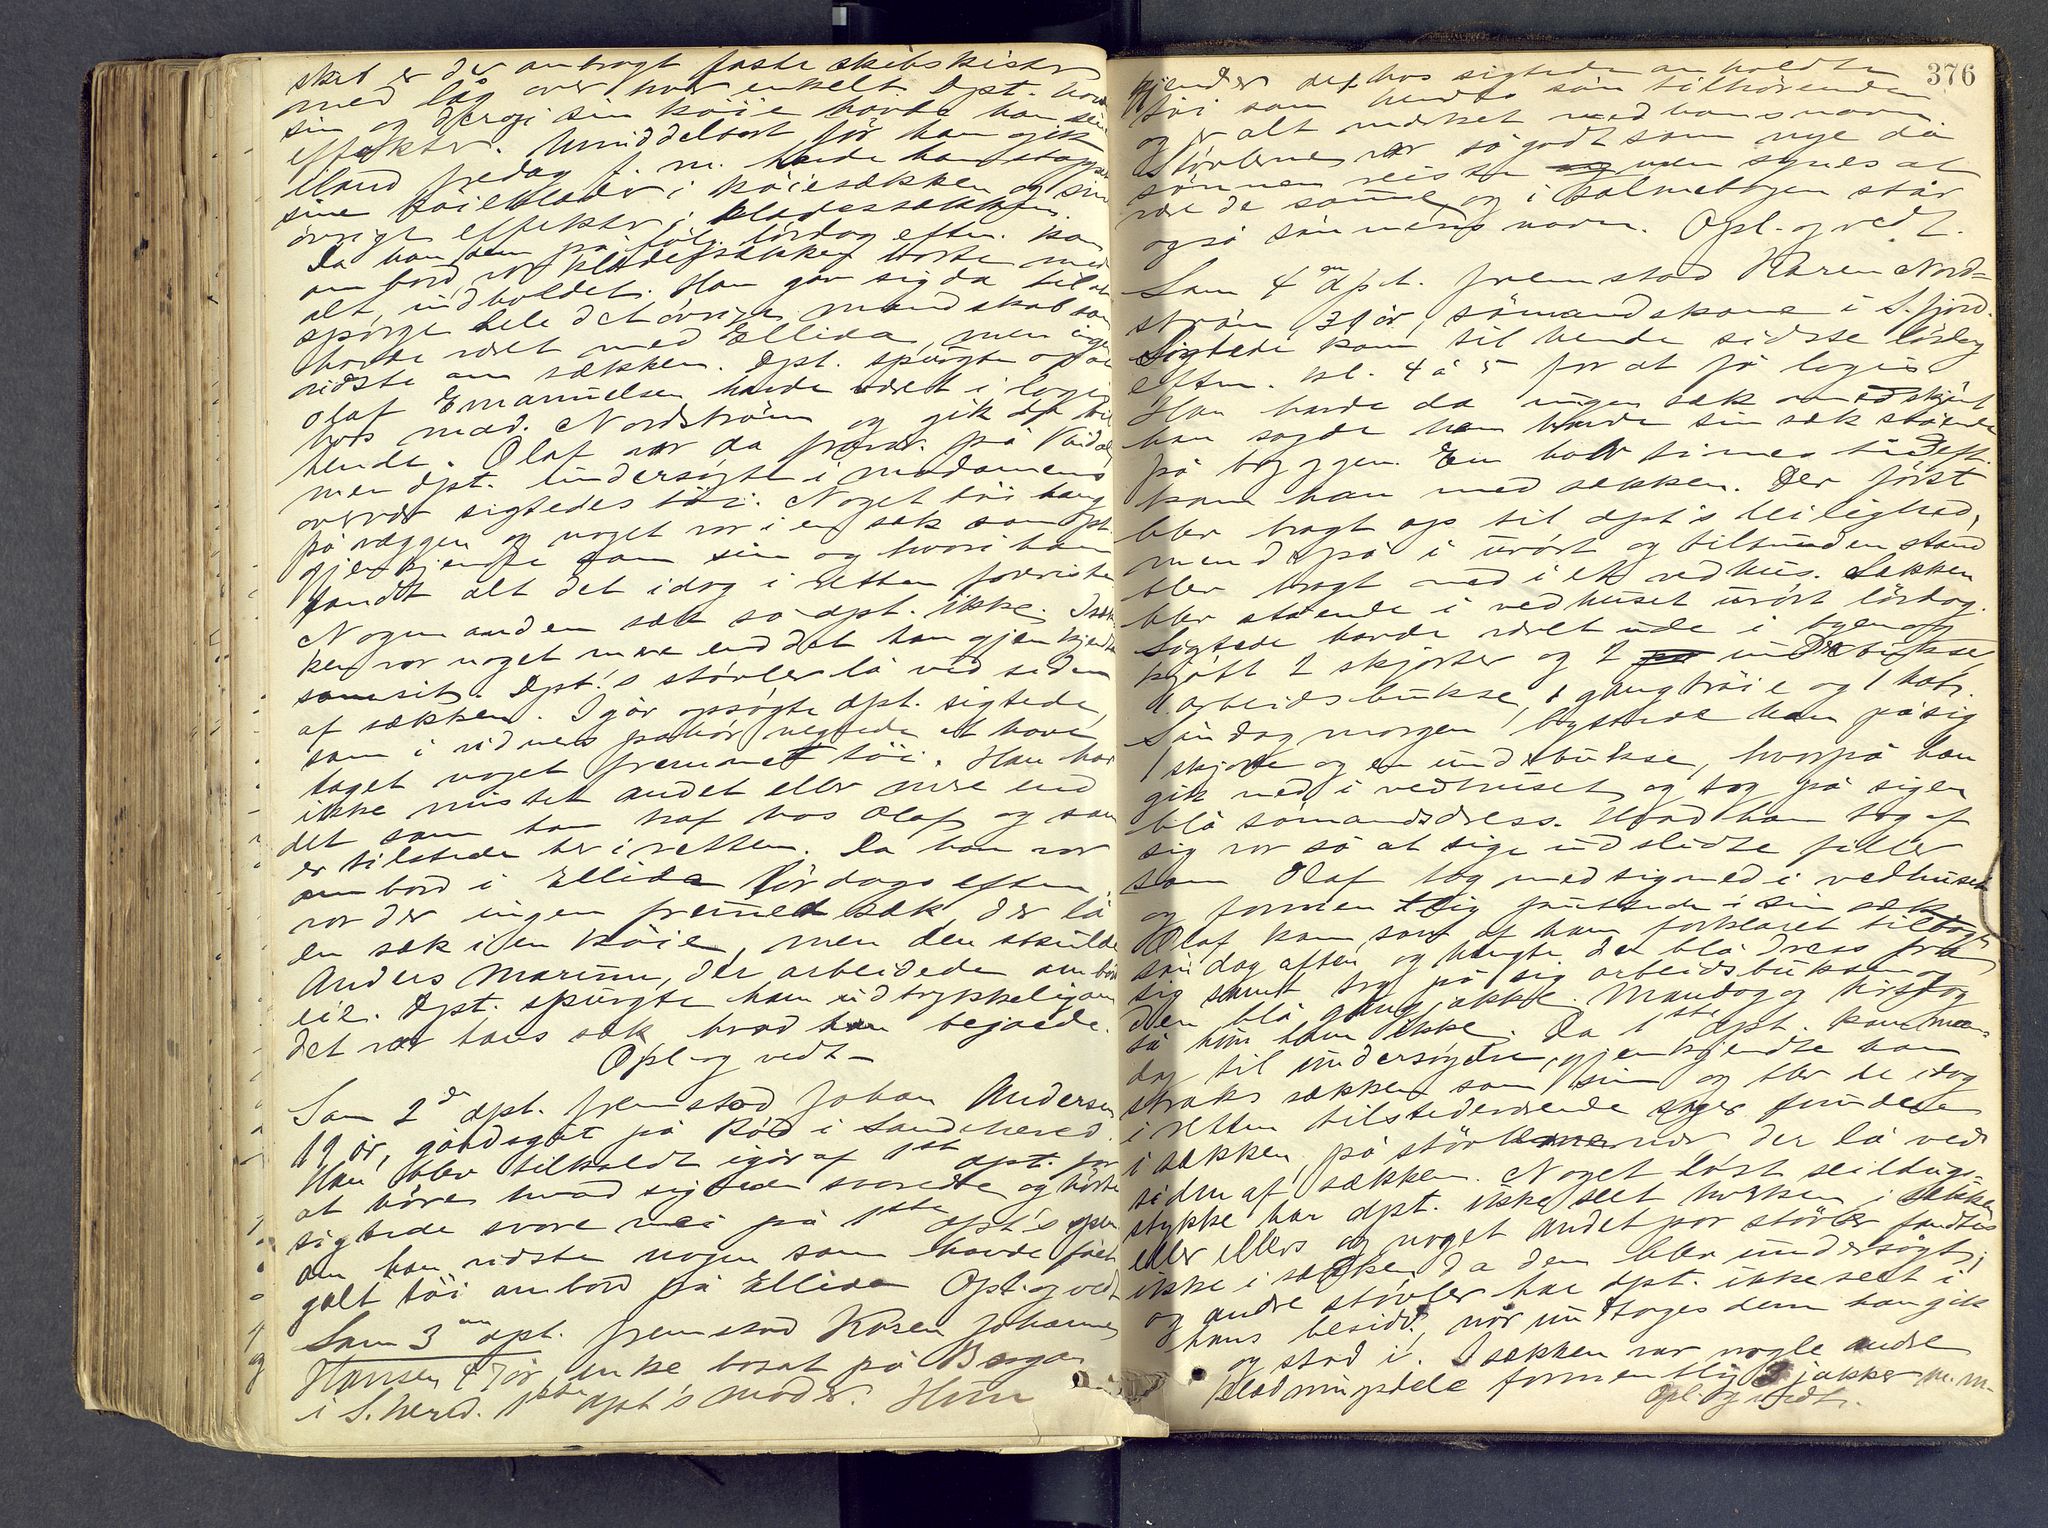 skab er der anbragt faste skibskister
med låg over hver enkelt. Dpt. havde
sin og deroji sin køie havde han sine
effekter. Umiddelbart før han gik
iland fredag f. m. havde han stoppet
sine køieklæder i køiesækken og sine
øvrige effekter i klædessækken.
Da han den på følg. lørdag efterm. kom
ombord, var klædessækken borte med
alt indholdet. Han gav sig da til at
spørge hele det øvrige mandskab som
havde været med Ellida, men ingen
vidste om sækken. Dpt. spurgte op at
Olaf Emanuelsen havde været i logi
hos mad. Nordstrøm og gik op til
hende. Olaf var da på
men dpt. undersøgte i madamens
overvær sigtedes tøi. Noget tøi hang
på væggen og noget var i en sæk som dpt.
gjenkjendte som sin og hvori han
fandt alt det idag i retten foreviste.
Nogen anden sæk så dpt. ikke. I sæk-
ken var noget mere end det han gjenkjendte
som sit. Dpt.'s støvler lå ved siden
af sækken. Igår opsøgte dpt. sigtede,
som i vidners påhør negtede at have
taget noget fremmet tøi. Han har
ikke mistet andet eller mere end
det som han traf hos Olaf og som
er tilstede her i retten. Da han var
ombord i Ellida lørdags efterm.
var der ingen fremmed sæk, der lå
en sæk i en køie, men den skulde
Anders Marinn, der arbeidede ombord
eie. Dpt. spurgte ham udtrykkelig om
det var hans sæk hvad han bejaede.
Opl. og vedt.
Som 2de dpt. fremstod Johan Andersen
19 år, gårdsgut på Rød i Sandehered.
Han blev tilkaldt igår af 1ste dpt. for
at høre hvad sigtede svarede og hørte
sigtede svare nei på 1ste dpt's spm.
om han vidste nogen som havde fået
galt tøi ombord på Ellida Opl. og vedt
Som 3die dpt. fremstod Karen Johanne
Hansen 47 år, enke bosat på Bergan
i S.hered. 1ste dpt's moder. Hun
376
kjender det hos sigtede anholdte
tøi som hendes søn tilhørende
og er alt mærket med hans navn.
Støvlerne var så godt som nye da
sønnen reiste men synes at
være de samme og i salmebogen står
også sønnens navn. Opl. og vedt.
Som 4de dpt. fremstod Karen Nord-
strøm 39 år, sømandskone i S.fjord.
Sigtede kom til hende sidste lørdag
efterm. kl. 4 à 5 for at få logis
Han havde da ingen sæk med skjønt
han sagde han havde sin sæk stående
på bryggen. En halv times tid eft.
kom han med sækken. Der først
blev bragt op til dpt's leilighed,
men derpå i urørt og tilbunden stand
blev bragt ned i et vedhus. Sækken
blev stående i vedhuset urørt lørdag.
Sigtede havde været ude i byen og
kjøbt 2 skjorter og 2 underbukser,
1 arbeidsbukse, 1 gangtrøie og 1 hat.
Søndag morgen byttede han på sig
1 skjorte og en underbukse, hvorpå han
gik ned i vedhuset og tog på sig en
blå sømandsdress. Hvad han tog af
sig var så at sige udslidte filler
som Olaf tog med sig ned i vedhuset
og formentlig puttede i sin sæk.
Olaf kom som af ham forklaret tilbage
søndag aften og hengte den blå dress fra
sig samt tog på sig arbeidsbuksen og
den blå gangjakke. Mandag og tirsdag
så hun ham ikke. Da 1ste dpt. kom man-
dag til undersøgelse, gjenkjendte han
straks sækken som sin og blev de idag
i retten tilstedeværende sager fundene
i sækken, på støvlerne nær, der lå ved
siden af sækken. Noget løst seildugs-
stykke har dpt. ikke seet hverken i sækken
eller ellers og noget andet par støvler fandtes
ikke i sækken da den blev undersøgt,
og andre støvler har dpt. ikke seet i
hans besidd., når undtages dem han gik
og stod i. I sækken var nogle andre
klædningsdele formentlig 2 jakker m. m.
Opl. og vedt.